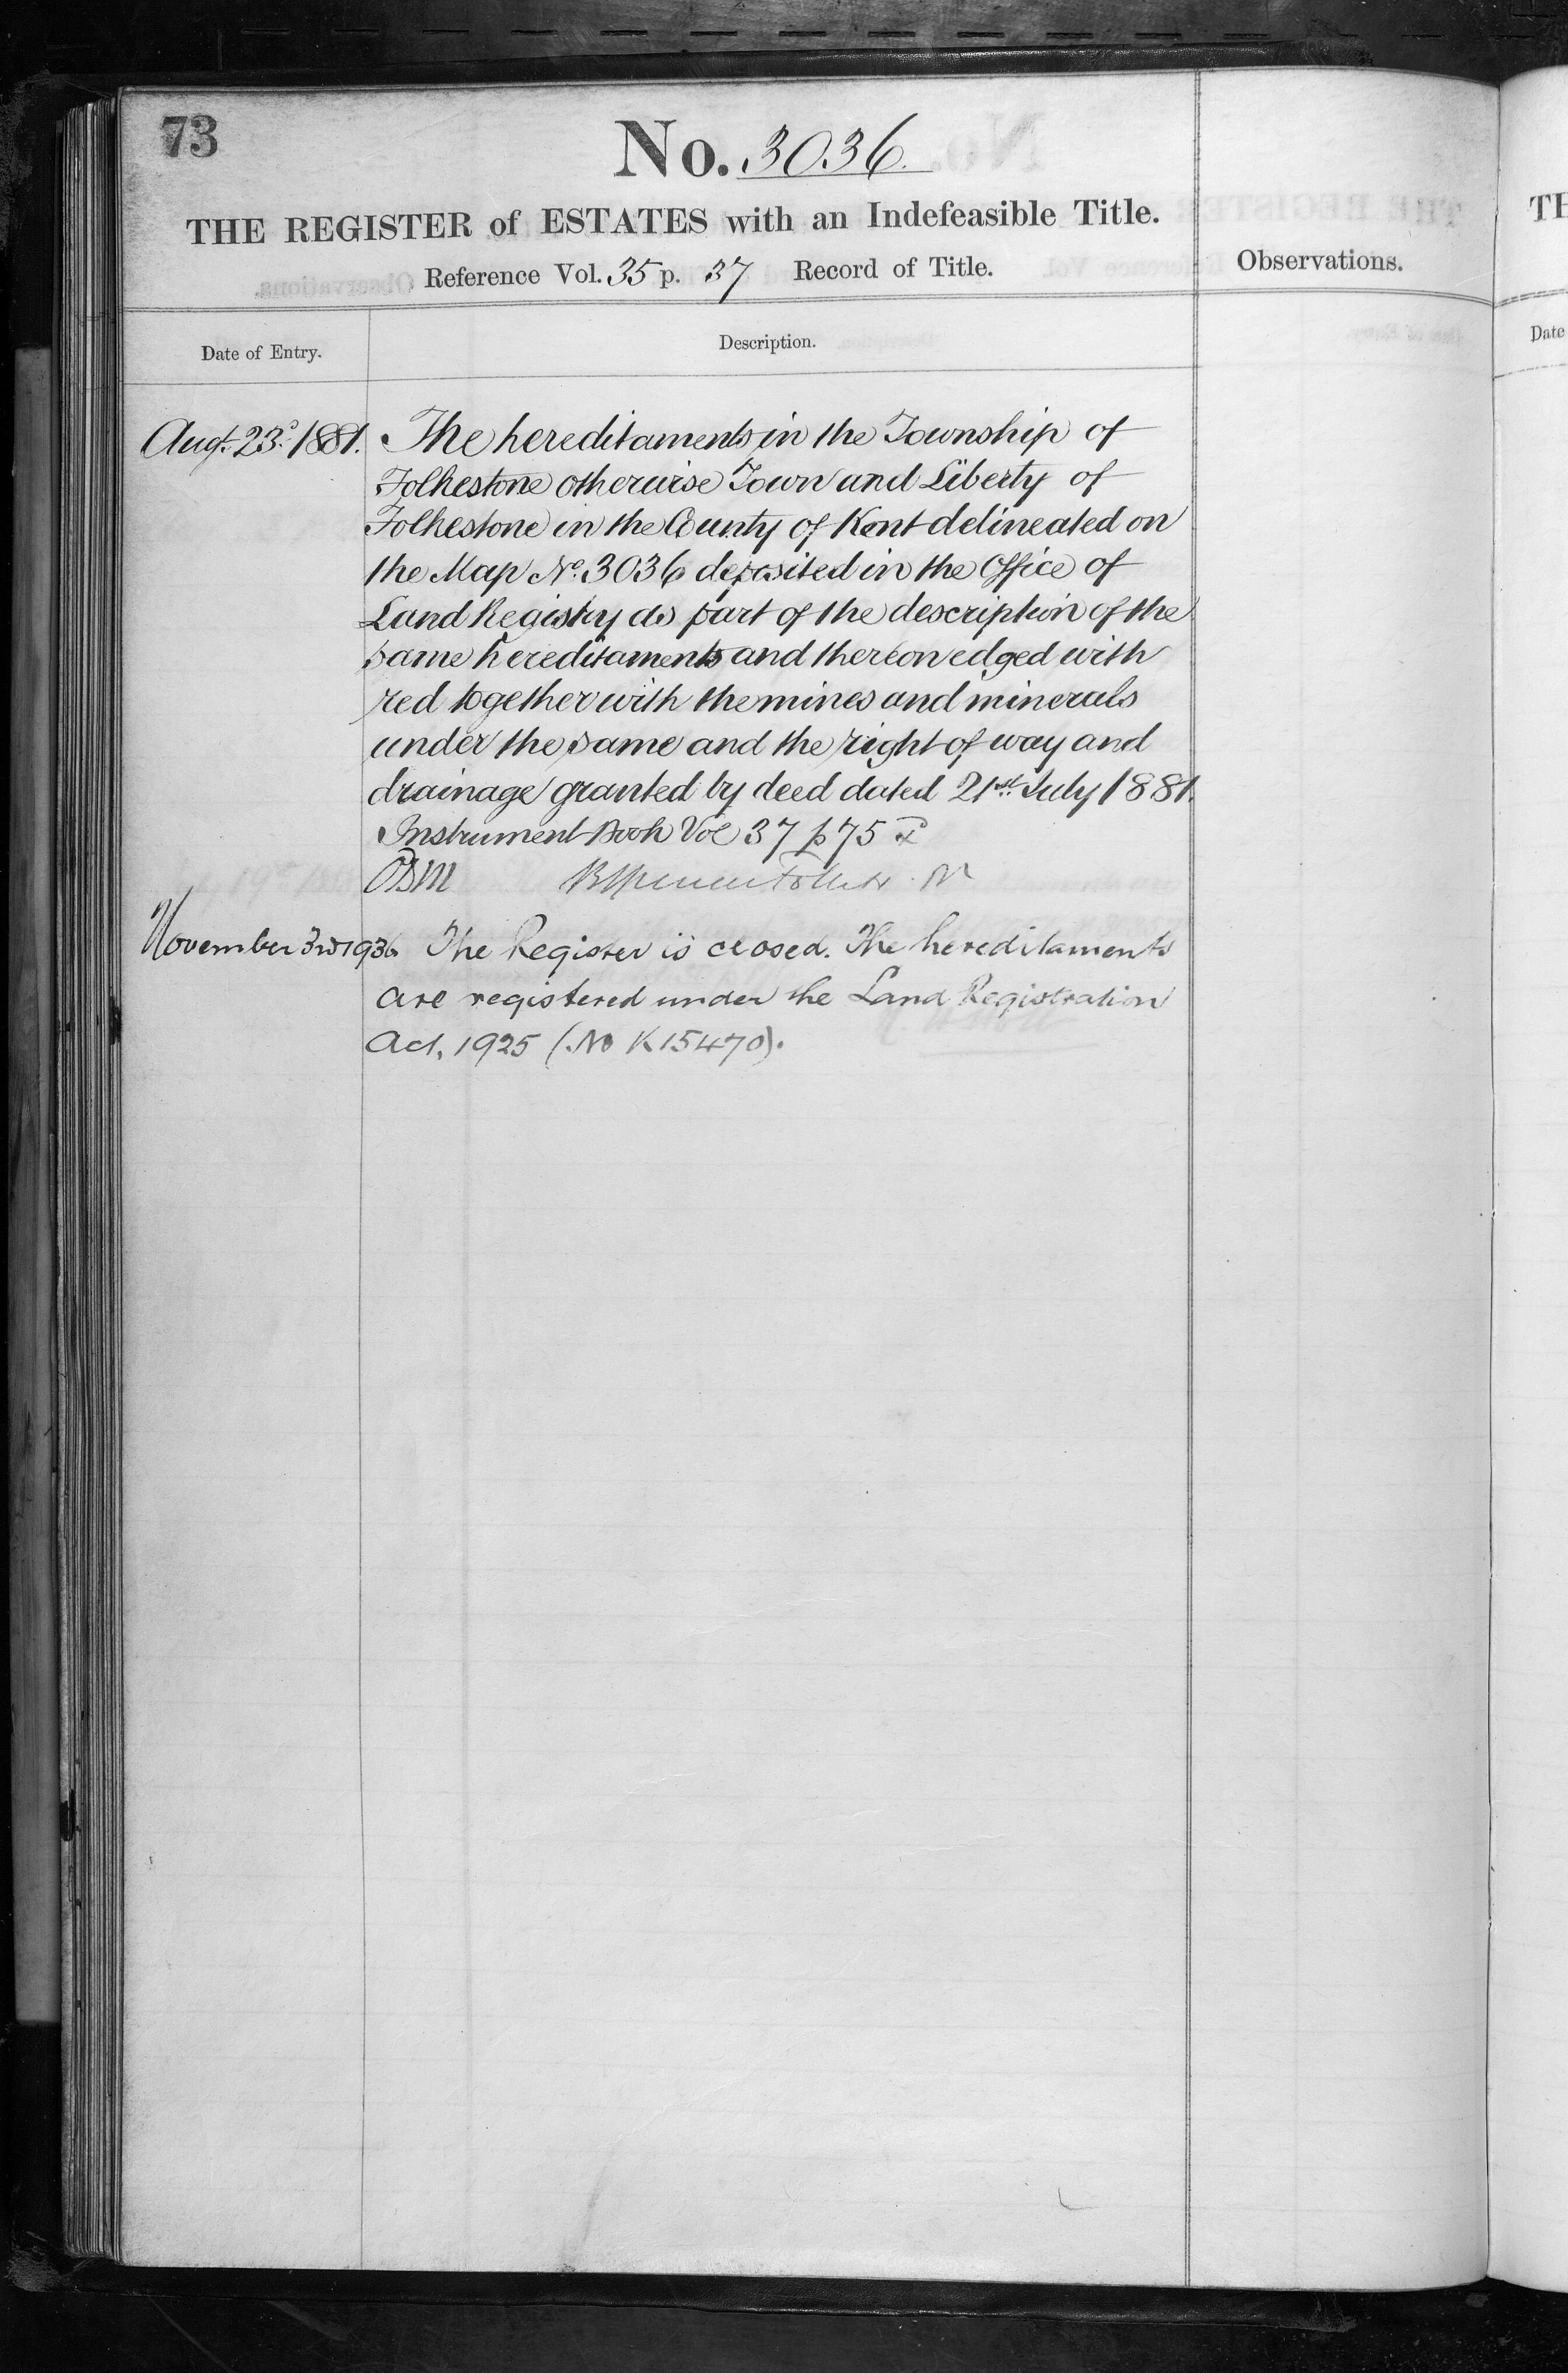 73
No. 3036.
THE REGISTER of ESTATES with an Indefeasible Title.
Reference Vol. 35 p. 37 Record of Title.
Observations.
Date of Entry.
Description.
Augt. 23d. 1881. The hereditaments in the Township of
Folkestone otherwise Town and Liberty of
Folkestone in the County of Kent delineated on
the Map No. 3036 deposited in the Office of
Land Registry as part of the description of the
same hereditaments and thereon edged with
red together with the mines and minerals
under the same and the right of way and
drainage granted by deed dated 21st July 1881.
Instrument Book Vol 37 p 75
November 3rd 1936 The Register is closed. The hereditaments
are registered under the Land Registration
Act, 1925 (No K15470).
TH
Date